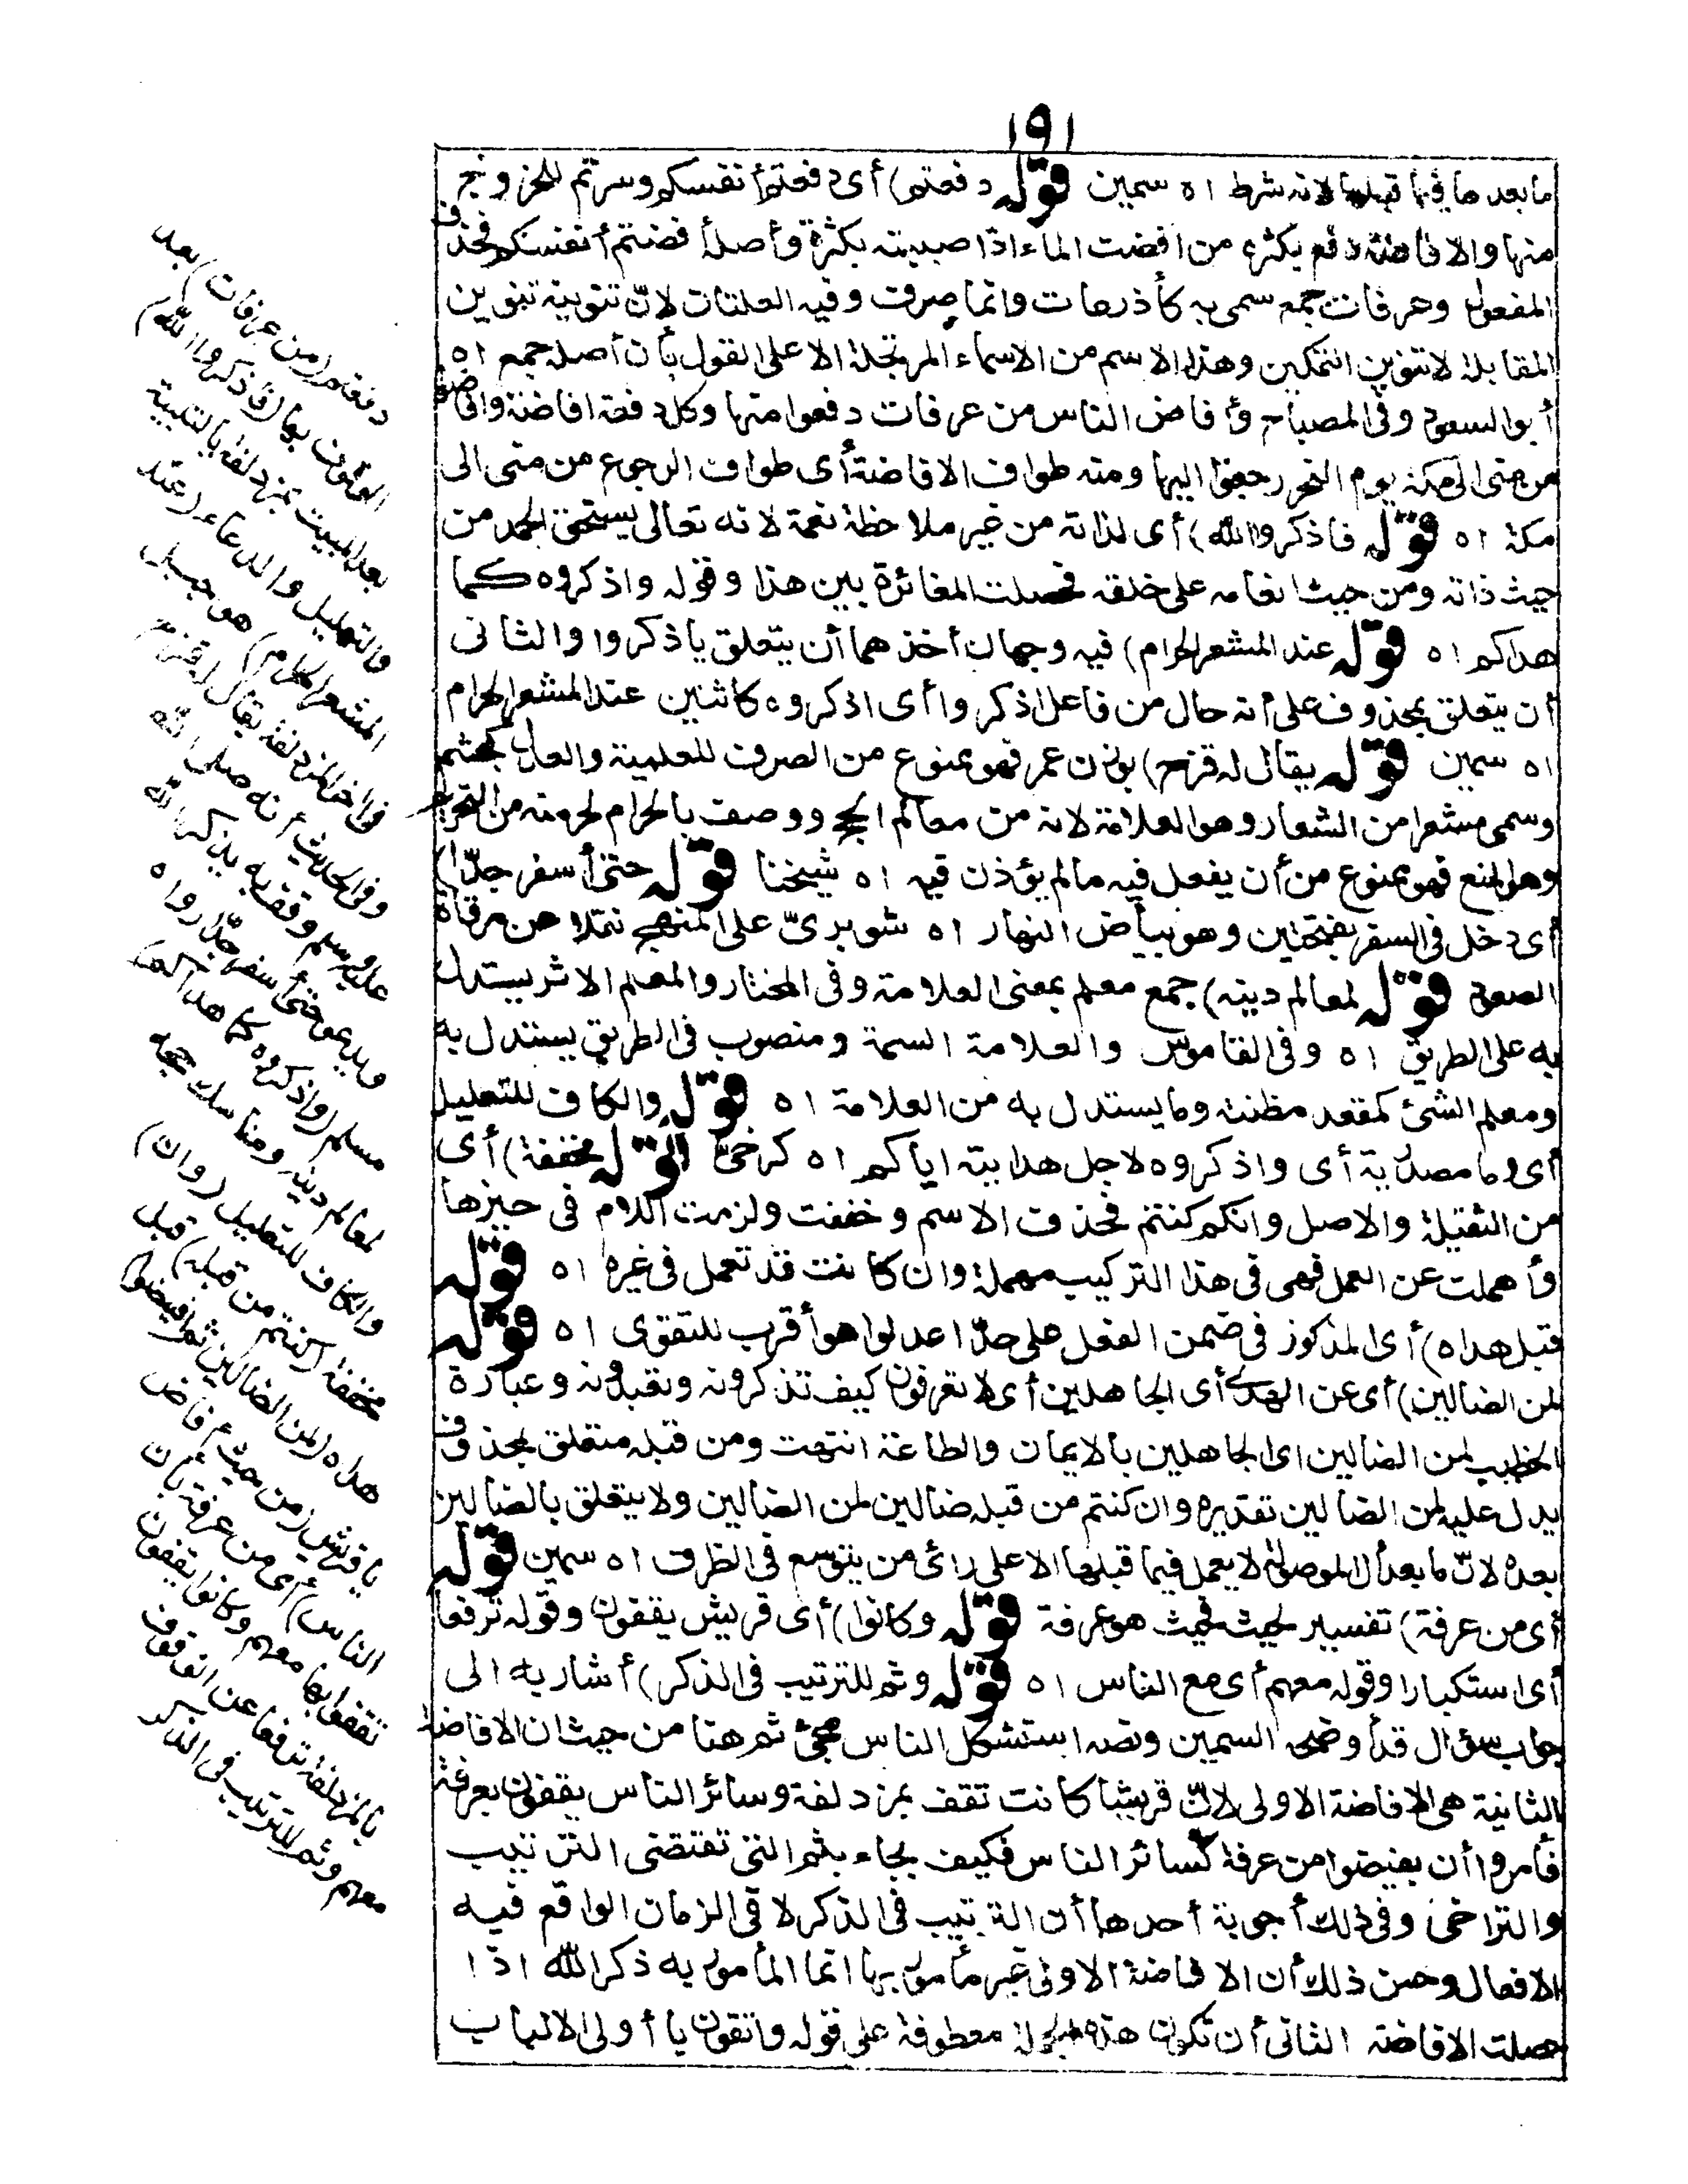 ١٩١
ما بعدها فيما قبلها لانه شرط اه سمين قوله دفعتم) أى دفعتم أنفسكم وسرتم للحز و نج
منها والافاضة دفع بكثرة من افضت الماء اذا صببته بكثرة وأصله أفضتم أنفسكم فحذف
المفعول وعرفات جمع سمى به كأذرعات وانما صرف وفيه العلتان لانّ تنوينه تنوين
المقابلة لا تنوين التمكين وهذا الاسم من الاسماء المرتجلة الا على القول بأن أصله جمع اه
أبو السعود وفى المصباح وأفاض الناس من عرفات دفعوا منها وكل دفعة افاضة وافاضوا
من منى الى مكة يوم النحر رجعوا اليها ومنه طواف الافاضة أى طواف الرجوع من منى الى
مكة اه قوله فاذكروا الله) أى لذاته من غير ملاحظة نعمة لانه تعالى يستحق الحمد من
حيث ذاته ومن حيث انعامه على خلقه فحصلت المغائرة بين هذا وقوله واذكروه كما
هداكم اه قوله عند المشعر الحرام) فيه وجهان أحدهما أن يتعلق باذكروا والثانى
أن يتعلق بمحذوف على أنه حال من فاعل اذكروا أى اذكروه كائنين عند المشعر الحرام
اه سمين قوله يقال له قزح) بوزن عمر فهو ممنوع من الصرف للعلمية والعدل كجشم
وسمى مشعرا من الشعار وهو العلامة لانه من معالم الحج ووصف بالحرام لحرمته من التحريم
وهو المنع فهو ممنوع من أن يفعل فيه ما لم يؤذن فيه اه شيخنا قوله حتى أسفر جدّا)
أى دخل فى السفر بفتحتين وهو بياض النهار اه شوبرىّ على المنهج نقلا عن مرقاة
الصعود قوله لمعالم دينه) جمع معلم بمعنى العلامة وفى المختار والمعلم الاثر يستدل
به على الطريق اه وفى القاموس والعلامة السمة ومنصوب فى الطريق يستدل به
ومعلم الشئ كمقعد مظنته وما يستدل به من العلامة اه قوله والكاف للتعليل
أى وما مصدرية أى واذكروه لاجل هدايته اياكم اه كرخىّ قوله مخففة) أى
من الثقيلة والاصل وانكم كنتم فحذف الاسم وخففت ولزمت اللام فى حيزها
وأهملت عن العمل فهى فى هذا التركيب مهملة وان كانت قد تعمل فى غيره اه قوله
قبل هداه) أى المذكور فى ضمن الفعل على حدّ اعدلوا هو أقرب للتقوى اه قوله
لمن الضالين) أى عن الهدى أى الجاهلين أى لا تعرفون كيف تذكرونه وتعبدونه وعبارة
الخطيب لمن الضالين اى الجاهلين بالايمان والطاعة انتهت ومن قبله متعلق بمحذوف
يدل عليه لمن الضالين تقديره وان كنتم من قبله ضالين لمن الضالين ولا يتعلق بالضالين
بعده لانّ ما بعد أل الموصولة لا يعمل فيما قبلها الا على رأى من يتوسع فى الظرف اه سمين قوله
أى من عرفة) تفسير لحيث فحيث هو عرفة قوله وكانوا) أى قريش يقفون وقوله ترفعا
أى استكبارا وقوله معهم أى مع الناس اه قوله وثم للترتيب فى الذكر) أشار به الى
جواب سؤال قد أوضحه السمين ونصه استشكل الناس مجئ ثم هنا من حيث ان الافاضة
الثانية هى الافاضة الاولى لانّ قريشا كانت تقف بمزدلفة وسائر الناس يقفون بعرفة
فأمروا أن يفيضوا من عرفة كسائر الناس فكيف يجاء بثم التى تقتضى الترتيب
والتراخى وفى ذلك أجوبة أحدها أن الترتيب فى الذكر لا فى الزمان الواقع فيه
الافعال وحسن ذلك أن الافاضة الاولى غير مأمور بها انما المأمور به ذكر الله اذا
حصلت الافاضة الثانى أن تكون هذه الجملة معطوفة على قوله واتقون يا أولى الالباب
دفعتم (من عرفات) بعد
الوقوف بها (فاذكروا الله)
بعد المبيت بمزدلفة بالتلبية
والتهليل والدعاء (عند
المشعر الحرام) هو جبل
فى آخر المزدلفة يقال له قزح
وفى الحديث أنه صلى الله
عليه وسلم وقف به يذكر الله
ويدعو حتى أسفر جدّا رواه
مسلم (واذكروه كما هداكم)
لمعالم دينه ومناسك حجه
والكاف للتعليل (وان)
مخففة (كنتم من قبله) قبل
هداه (لمن الضالين ثم أفيضوا)
يا قريش (من حيث أفاض
الناس) أى من عرفة بأن
تقفوا بها معهم وكانوا يقفون
بالمزدلفة ترفعا عن الوقوف
معهم وثم للترتيب فى الذكر